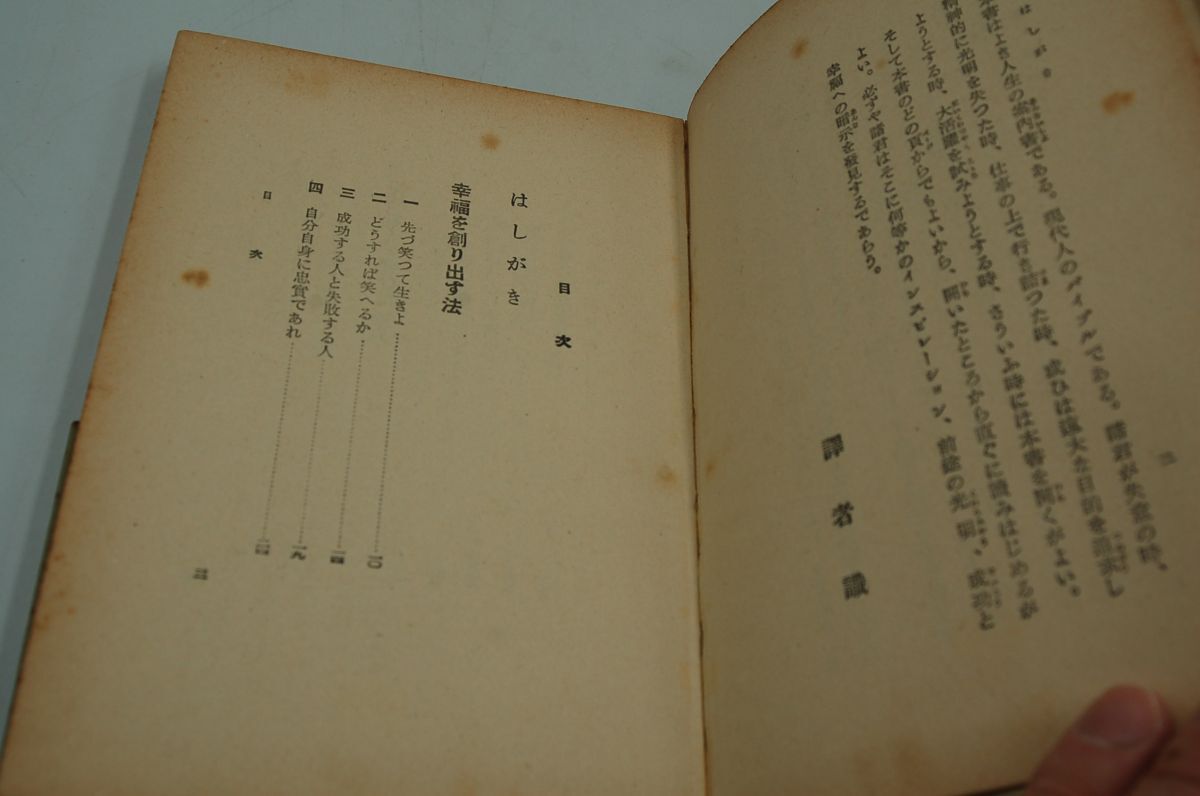 はしがき
二
本書はよき人生の案内書である。現代人のバイブルである。諸君が失意の時、
精神的に光明を失つた時、仕事の上で行き詰つた時、或ひは遠大な目的を
ようとする時、大活躍を試みようとする時、さういふ時には本書を開くがよい。
そして本書のどの頁からでもよいから、開いたところから直ぐに讀みはじめるが
よい。必ずや諸君はそこに何等かのインスピレーション、前途の光明、成功と
幸福への暗示を發見するであらう。
譯者識
目次
はしがき
幸福を創り出す法
一 先づ笑つて生きよ……一〇
二 どうすれば笑へるか……一四
三 成功する人と失敗する人……一九
四 自分自身に忠實であれ……二四
目次
三